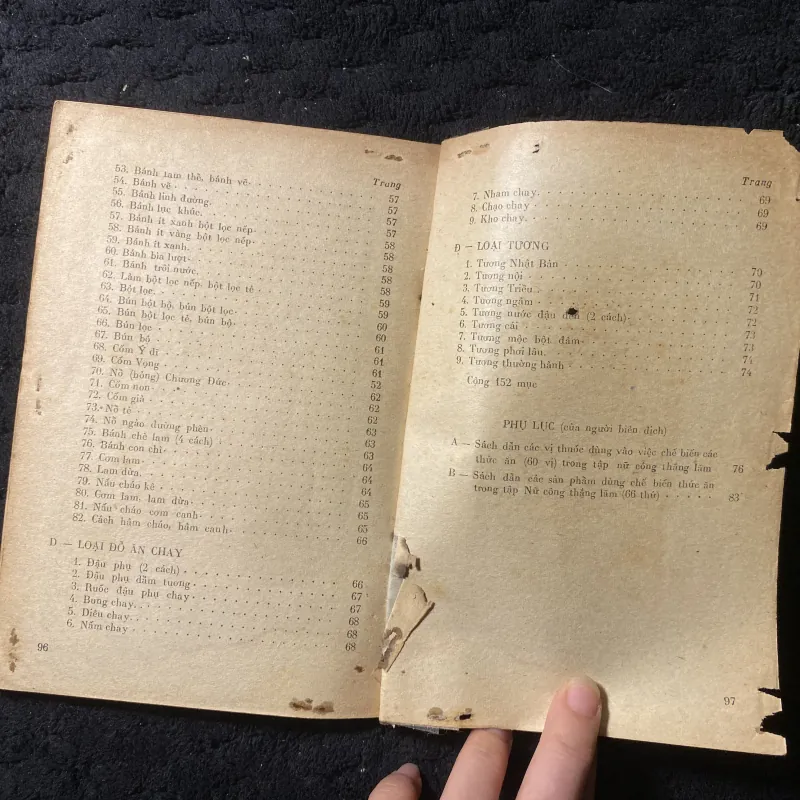 Trang
53. Bánh tam thê, bánh vẽ 57
54. Bánh vẽ 57
55. Bánh linh đường. 57
56. Bánh lục khúc. 57
57. Bánh ít xanh bột lọc nếp 58
58. Bánh ít vàng bột lọc nếp 58
59. Bánh ít xanh. 58
60. Bánh bìa lượt 58
61. Bánh trôi nước. 58
62. Làm bột lọc nếp, bột lọc tẻ 59
63. Bột lọc. 59
64. Bún bột bộ, bún bột lọc 60
65. Bún bột lọc tẻ, bún bộ 60
66. Bún lọc 61
67. Bún bộ 61
68. Cốm Ý dĩ 61
69. Cốm Vọng 52
70. Nõ (bỏng) Chương Đức 62
71. Cốm non 62
72. Cốm già 62
73. Nõ tẻ 63
74. Nõ ngào đường phèn 63
75. Bánh chè lam (4 cách) 63
76. Bánh con chì 64
77. Cơm lam 64
78. Lam dừa. 64
79. Nấu cháo kê 65
80. Cơm lam, lam dừa 65
81. Nấu cháo cơm canh 65
82. Cách hầm cháo, hầm canh 66
D — LOẠI ĐỒ ĂN CHAY
1. Đậu phụ (2 cách) 66
2. Đậu phụ dầm tương 67
3. Ruốc đậu phụ chay 67
4. Bung chay. 68
5. Diêu chay. 68
6. Nấm chay 68
96
Trang
7. Nham chay. 69
8. Chạo chay 69
9. Kho chay. 69
Đ — LOẠI TƯƠNG
1. Tương Nhật Bản 70
2. Tương nội 70
3. Tương Triều 71
4. Tương ngâm 72
5. Tương nước đậu đen (2 cách) 72
6. Tương cải 73
7. Tương mộc bột đám 73
8. Tương phơi lâu. 74
9. Tương thường hành 74
Cộng 152 mục
PHỤ LỤC (của người biên dịch)
A — Sách dẫn các vị thuốc dùng vào việc chế biến các
thức ăn (60 vị) trong tập nữ công thắng lãm 76
B — Sách dẫn các sản phẩm dùng chế biến thức ăn
trong tập Nữ công thắng lãm (66 thứ) 83
97